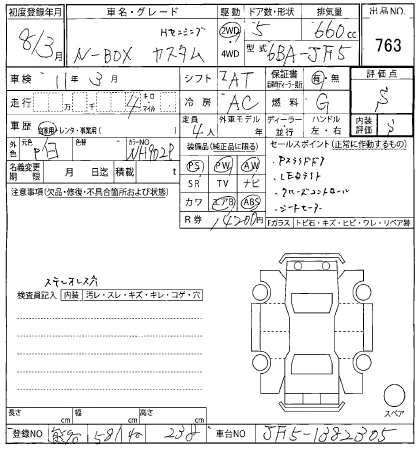 初度登録年月 車名・グレード 駆動 ドア数・形状 排気量 出品NO.
8/3月 N-BOX カスタム 2WD 4WD 5 660cc 763
型式 6BA-JF5
車検 11年3月 シフト IAT 保証書 有・無 評価点
走行 万 千 4 キロ マイル 冷房 AC 燃料 G 5
車歴 自家用・レンタ・事業用( ) 定員 4人 外車モデル 年 ディーラー 並行 ハンドル 左・右 内装評価 5
外色 元色 白 カラーNO NH902P 装備品(純正品に限る) セールスポイント(正常に作動するもの)
名義変更期限 月 日迄 積載 t PS PW AW
注意事項(欠品・修復・不具合箇所および状態) SR TV ナビ
・LEDライト
カワ エアB ABS
・クルーズコントロール
R券 14200円
・シートヒーター
Fガラス トビ石・キズ・ヒビ・ワレ・リペア跡
ステレオレス穴
検査員記入 内装 汚レ・スレ・キズ・キレ・コゲ・穴
スペア
長さ cm 幅 cm 高さ cm
登録NO 581 238 車台NO JF5-1382305